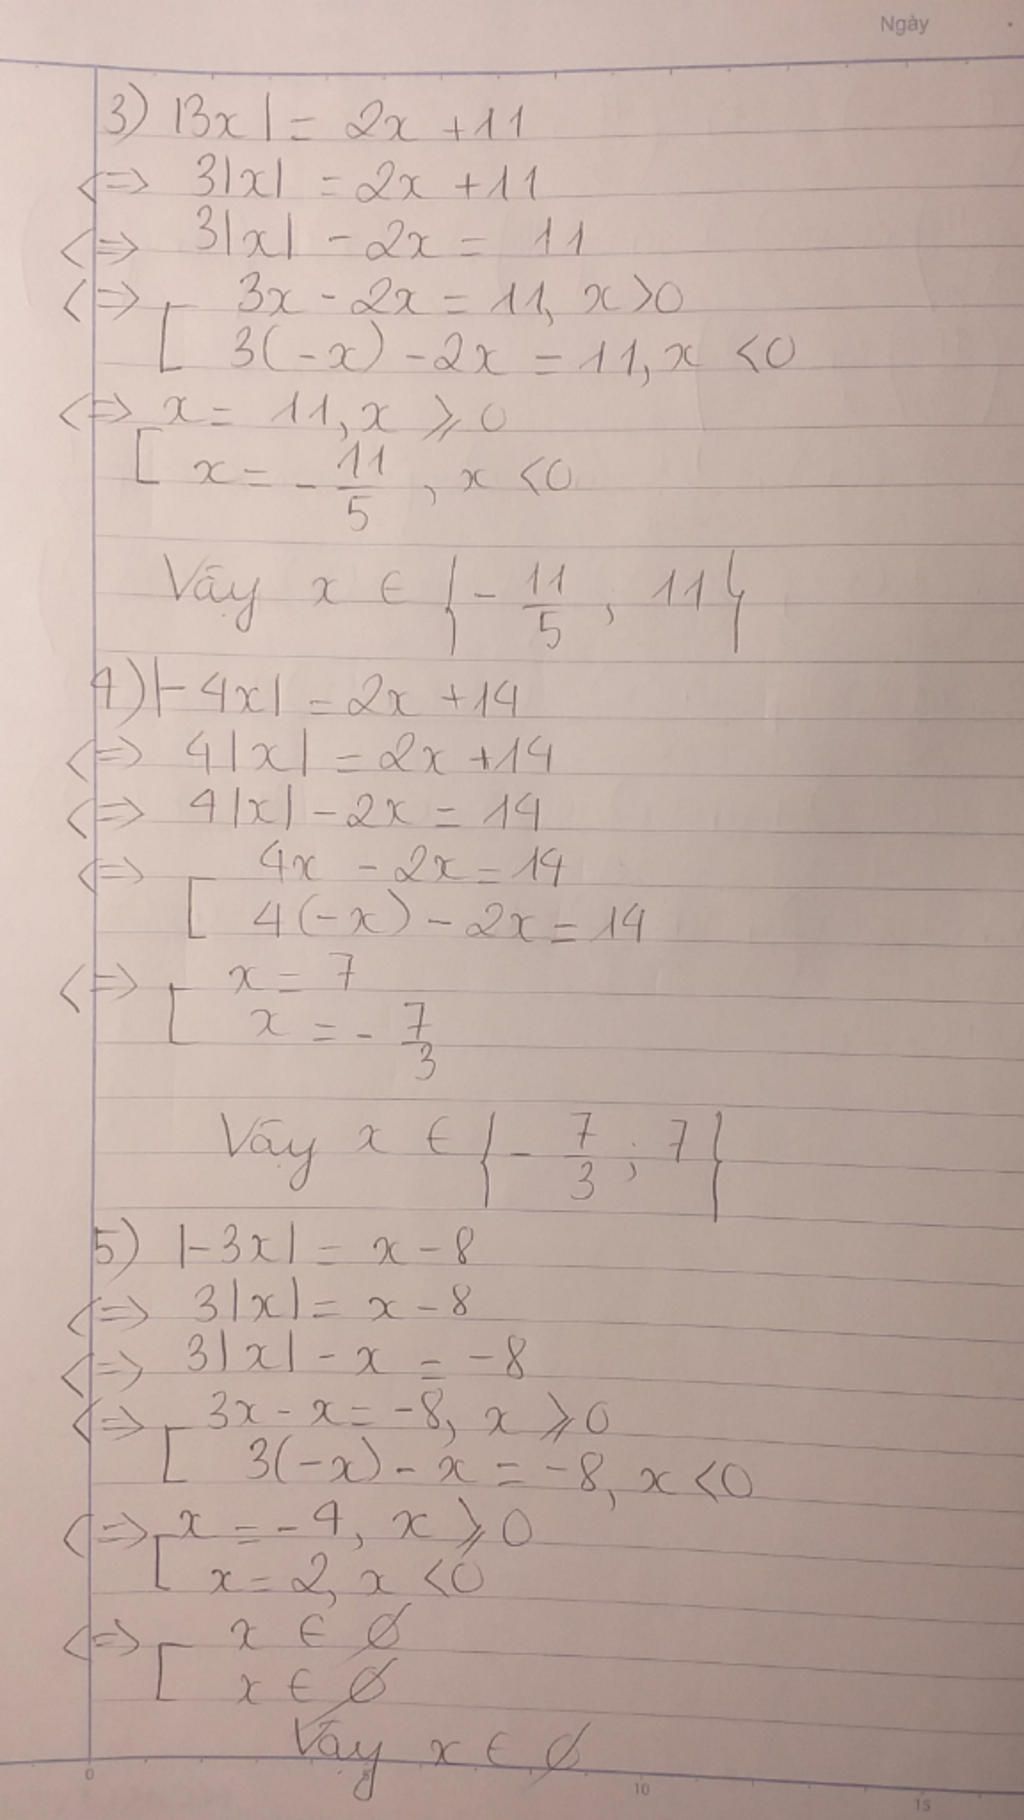 Ngày
3) |3x| = 2x + 11
<=> 3|x| = 2x + 11
<=> 3|x| - 2x = 11
<=> [ 3x - 2x = 11, x > 0
3(-x) - 2x = 11, x < 0
<=> [ x = 11, x ⩾ 0
x = - 11/5, x < 0
Vậy x ∈ { - 11/5 ; 11 }
4) |-4x| = 2x + 14
<=> 4|x| = 2x + 14
<=> 4|x| - 2x = 14
<=> [ 4x - 2x = 14
4(-x) - 2x = 14
<=> [ x = 7
x = - 7/3
Vậy x ∈ { - 7/3 ; 7 }
5) |-3x| = x - 8
<=> 3|x| = x - 8
<=> 3|x| - x = -8
<=> [ 3x - x = -8, x ⩾ 0
3(-x) - x = -8, x < 0
<=> [ x = -4, x ⩾ 0
x = 2, x < 0
<=> [ x ∈ ∅
x ∈ ∅
Vậy x ∈ ∅
0 10 15